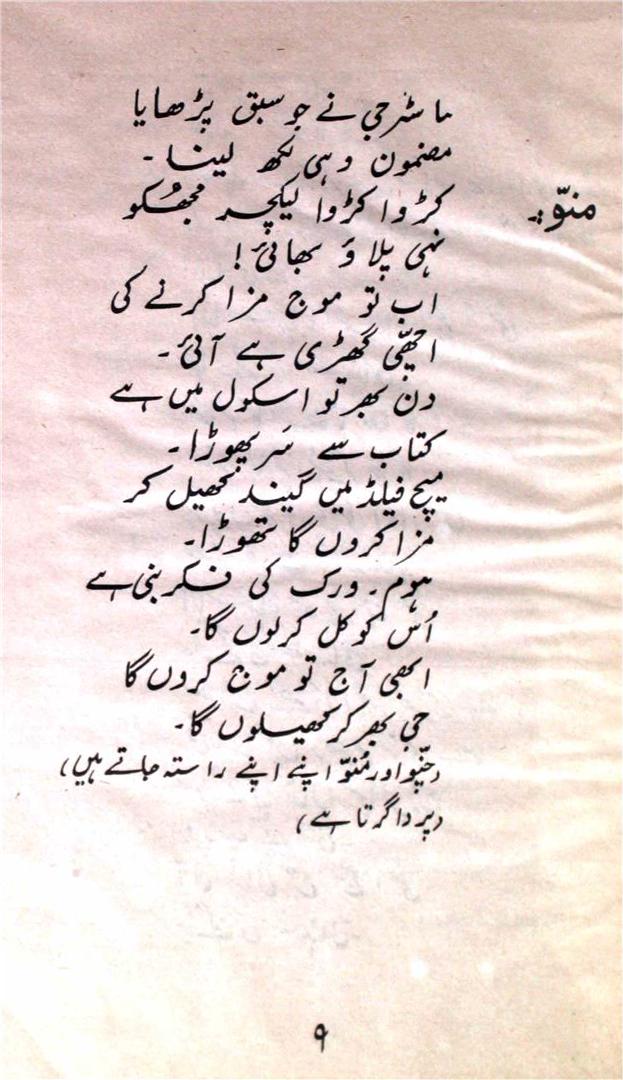 ماسٹرجی نے جو سبق پڑھایا
مضمون وہی لکھ لینا۔
منوّ:۔ کڑوا کڑوا لیکچر مجھُکو
نہی پلاؤ بھائی!
اب تو موج مزا کرنے کی
اچھّی گھڑی ہے آئی۔
دن بھر تو اسکول میں ہے
کتاب سے سَر پھوڑا۔
میچ فیلڈ میں گیند کھیل کر
مزا کروں گا تھوڑا۔
ہوم۔ ورک کی فکر بنی ہے
اُس کو کل کرلوں گا۔
ابھی آج تو موج کروں گا
جی بھر کر کھیلوں گا۔
(چنّو اور مُنوّ اپنے اپنے راستہ جاتے ہیں)
(پردا گرتا ہے)
۹